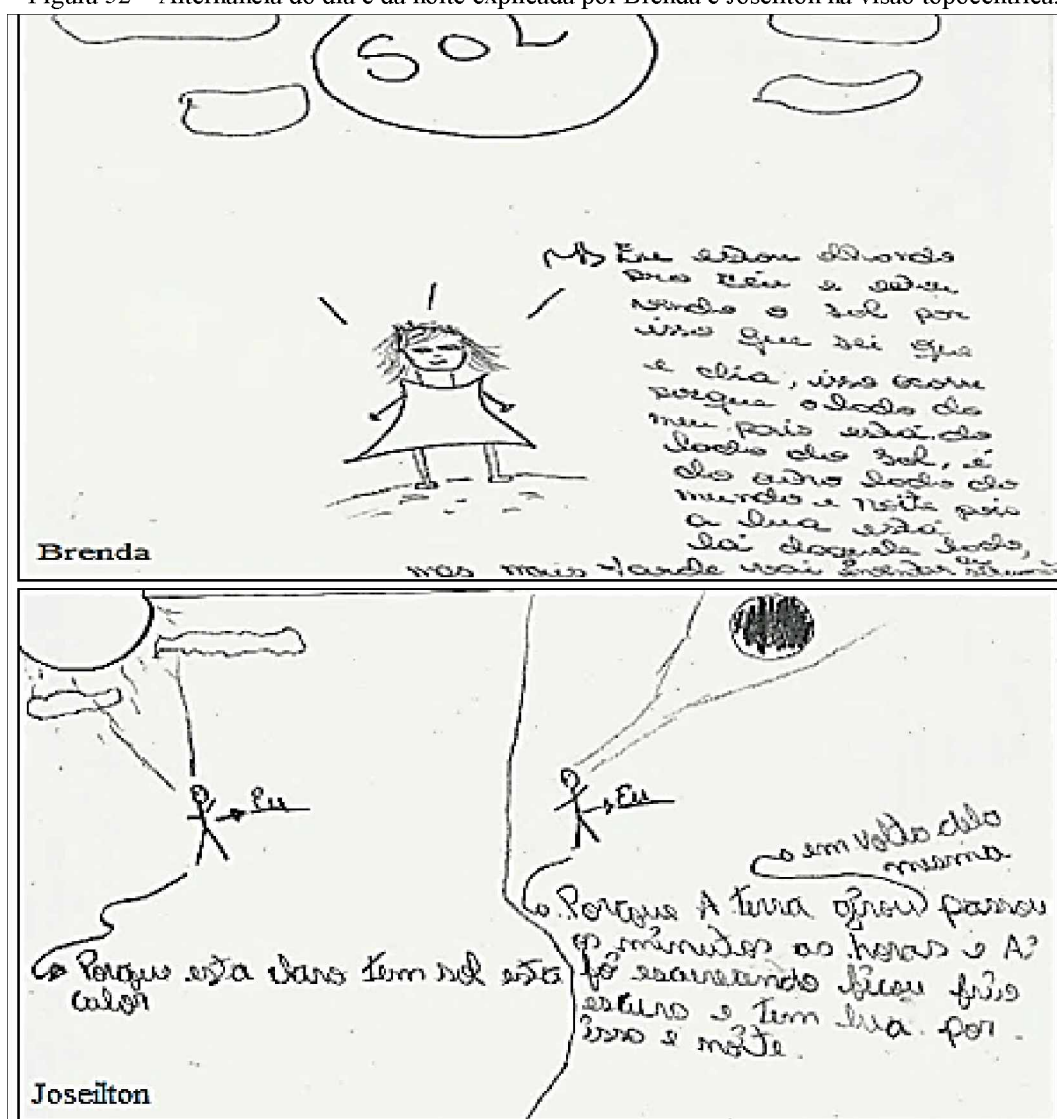 Figura 32 – Alternância do dia e da noite explicada por Brenda e Joseilton na visão topocêntrica.
SOL
Eu estou olhando
pro céu e estou
vendo o sol por
isso que sei que
e dia, isso ocorre
porque o lado do
meu país está do
lado do sol, é
do outro lado do
mundo e noite pois
a lua está
lá daquele lado,
mas mais tarde vai
Brenda
Eu
Porque esta claro tem sol esta
calor
Eu
em volta dela
mesma
Porque A terra girou passou
os minutos as horas e
escurecendo ficou frio
escuro e tem lua. por
isso e noite.
Joseilton